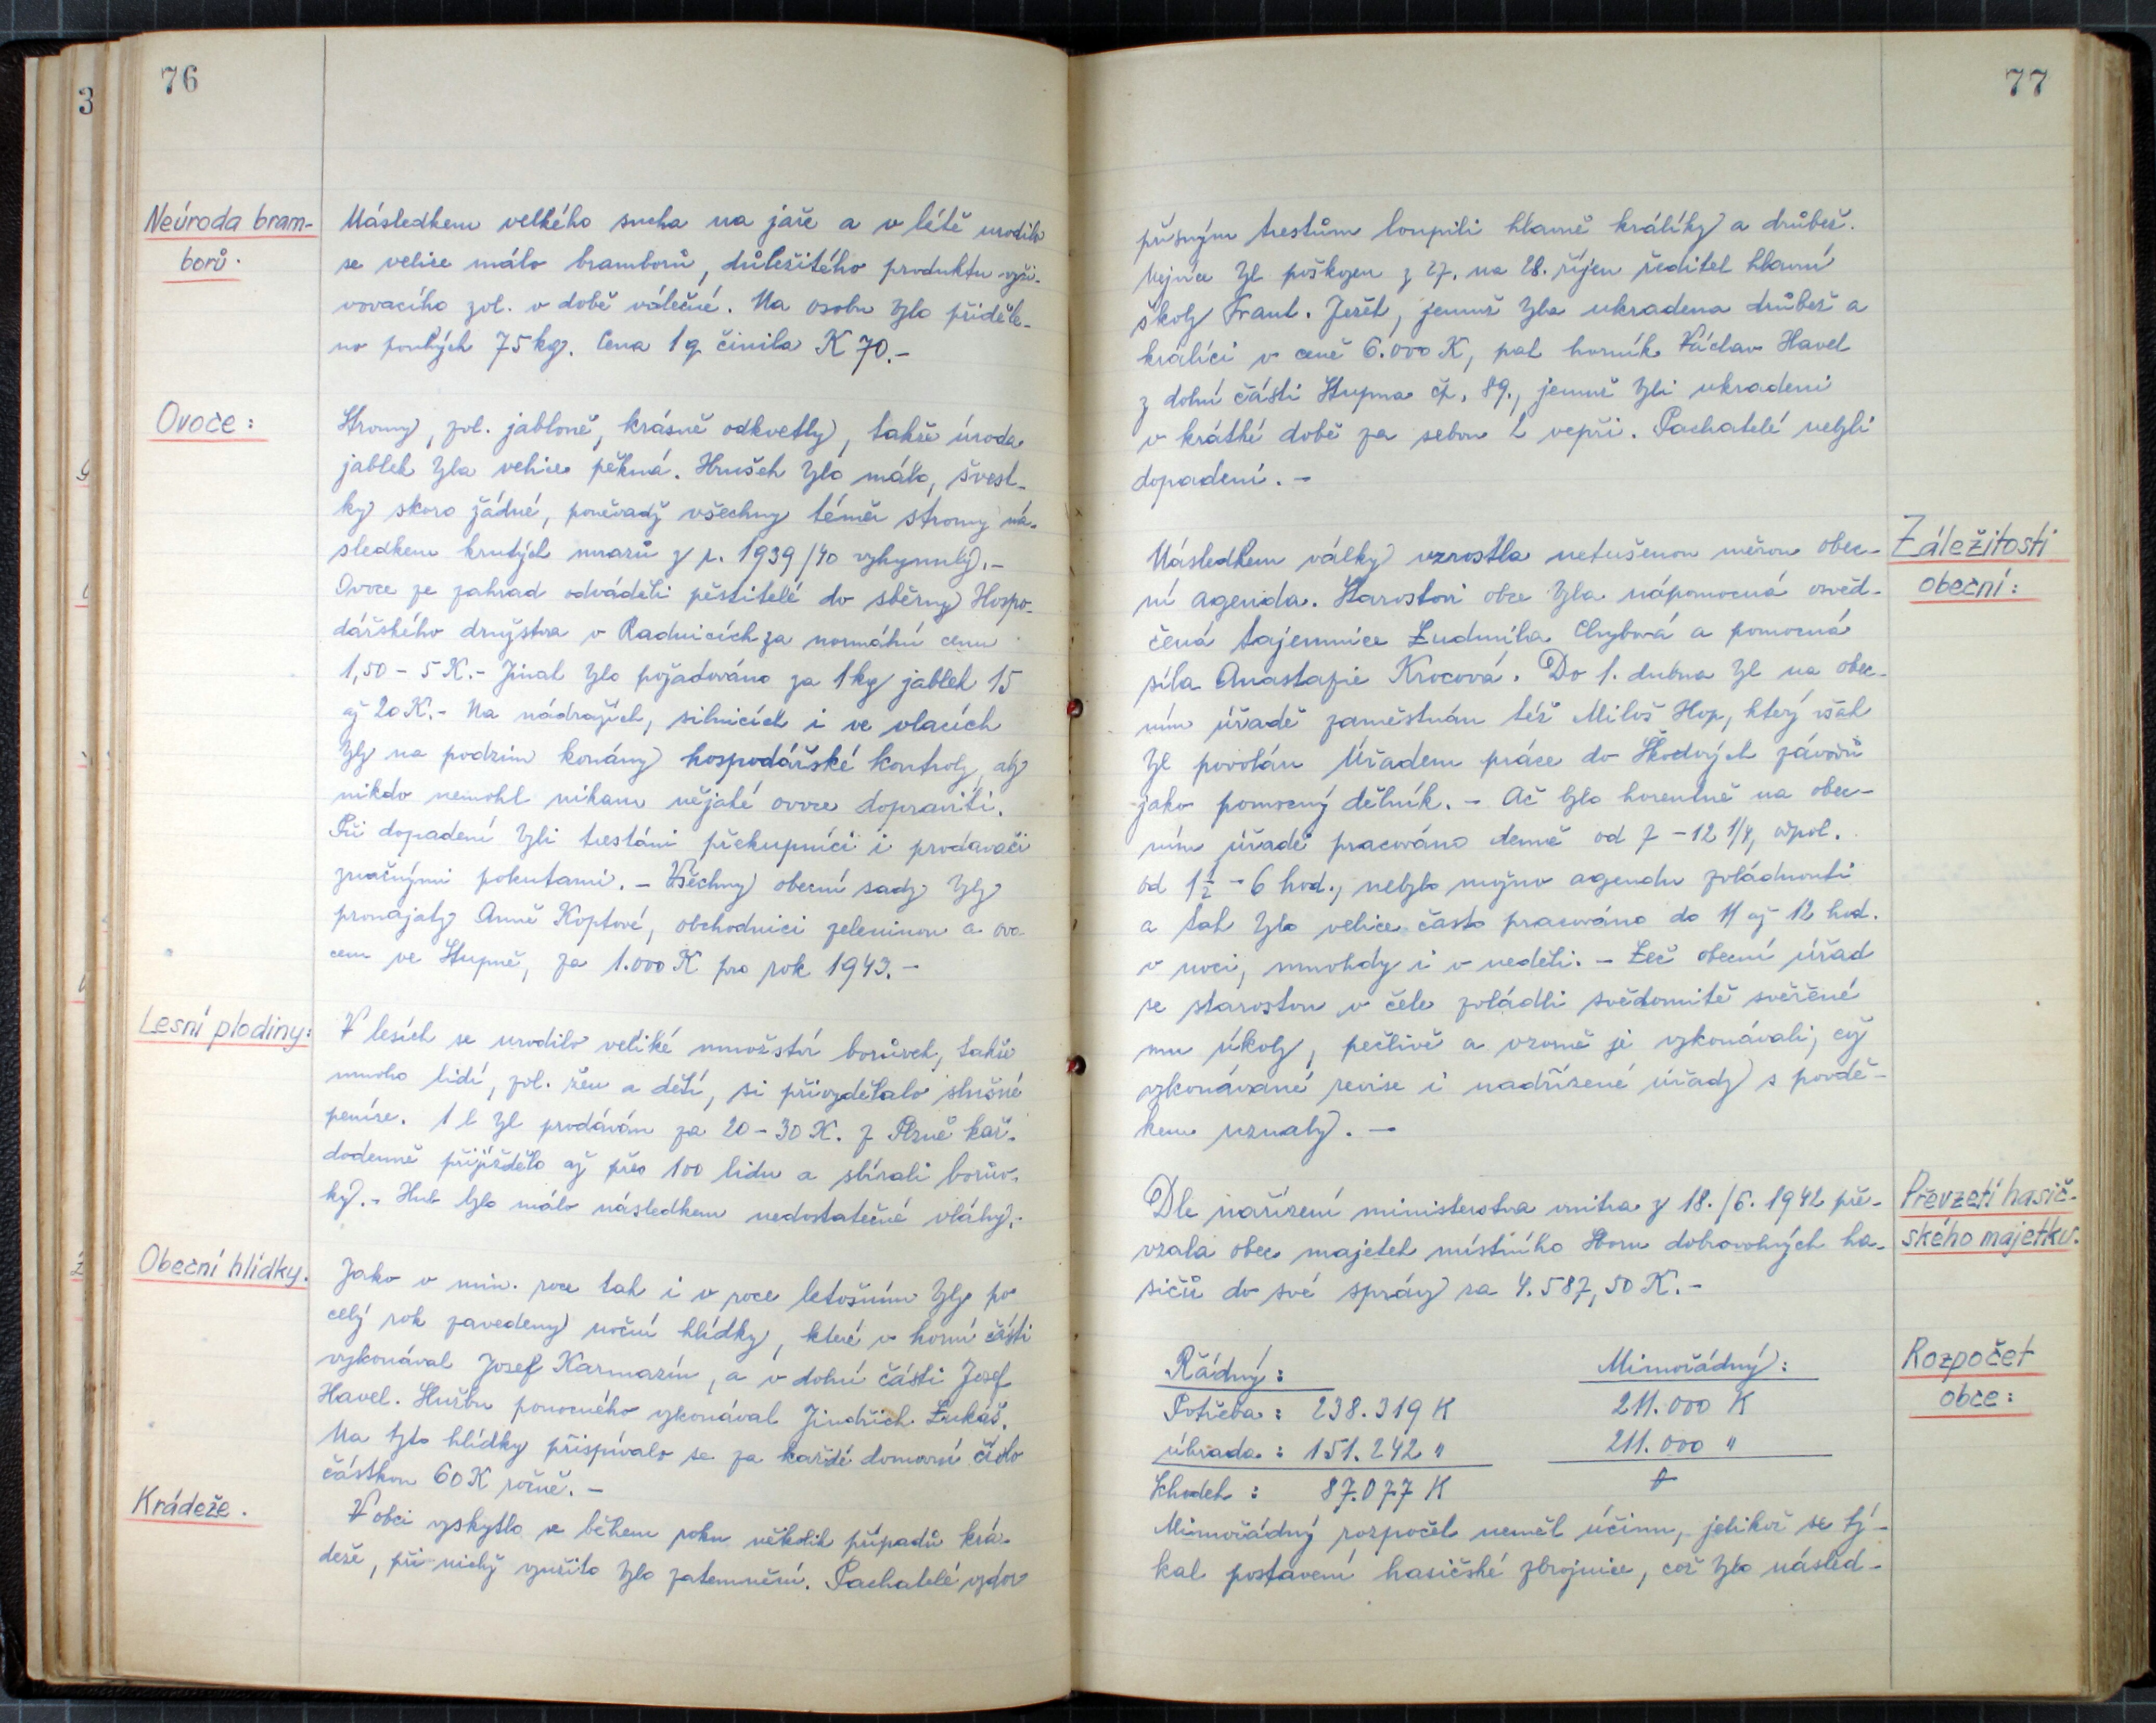 76
Neúroda bram-
borů.
Následkem velkého sucha na jaře a v létě urodilo
se velice málo bramborů, důležitého produktu vyži-
vovacího zvl. v době válečné. Na osobu bylo přiděle-
no pouhých 75 kg. Cena 1 q činila K 70.-
Ovoce:
Stromy, zvl. jabloně, krásně odkvetly, takže úroda
jablek byla velice pěkná. Hrušek bylo málo, švest-
ky skoro žádné, poněvadž všechny téměř stromy ná-
sledkem krutých mrazů z r. 1939/40 vyhynuly.-
Ovoce ze zahrad odváděli pěstitelé do sběrny Hospo-
dářského družstva v Radnicích za normální cenu
1,50 - 5 K.- Jinak bylo požadováno za 1 kg jablek 15
až 20 K.- Na nádražích, silnicích i ve vlacích
byly na podzim konány hospodářské kontroly, aby
nikdo nemohl nikam nějaké ovoce dopraviti.
Při dopadení byli trestáni překupníci i prodavači
značnými pokutami. - Všechny obecní sady byly
pronajaty Anně Koptové, obchodnici zeleninou a ovo-
cem ve Stupně, za 1.000 K pro rok 1943.-
Lesní plodiny:
V lesích se urodilo veliké množství borůvek, takže
mnoho lidí, zvl. žen a dětí, si přivydělalo slušné
peníze. 1 l byl prodáván za 20 - 30 K. Z Plzně kaž-
dodenně přijíždělo až přes 100 lidu a sbírali borův-
ky.- Hub bylo málo následkem nedostatečné vláhy.-
Obecní hlídky.
Jako v min. roce tak i v roce letošním byly po
celý rok zavedeny noční hlídky, které v horní části
vykonával Josef Karmazín, a v dolní části Josef
Havel. Službu ponocného vykonával Jindřich Lukáš.
Na tyto hlídky přispívalo se za každé domovní číslo
částkou 60 K ročně. -
Krádeže.
V obci vyskytlo se během roku několik případů krá-
deže, při nichž využito bylo zatemnění. Pachatelé vzdor
77
přísným trestům loupili hlavně králíky a drůbež.
Nejvíce byl poškozen z 27. na 28. říjen ředitel hlavní
školy Frant. Jezl, jemuž byla ukradena drůbež a
králíci v ceně 6.000 K, pak horník Václav Havel
z dolní části Stupna čp. 89., jemuž byli ukradeni
v krátké době za sebou 2 vepři. Pachatelé nebyli
dopadeni. -
Záležitosti
obecní:
Následkem války vzrostla netušenou měrou obec-
ní agenda. Starostovi obce byla nápomocná osvěd-
čená tajemnice Ludmila Chybová a pomocná
síla Anastazie Krocová. Do 1. dubna byl na obec-
ním úřadě zaměstnán též Miloš Hop, který však
byl povolán Úřadem práce do Škodových závodů
jako pomocný dělník. - Ač bylo horentně na obec-
ním úřadě pracováno denně od 7 - 12 1/4, odpol.
od 1 1/2 - 6 hod., nebylo možno agendu zvládnouti
a tak bylo velice často pracováno do 11 až 12 hod.
v noci, mnohdy i v neděli. - Leč obecní úřad
se starostou v čele zvládli svědomitě svěřené
mu úkoly, pečlivě a vzorně je vykonávali, což
vykonávané revise i nadřízené úřady s povdě-
kem uznaly. -
Převzetí hasič-
ského majetku.
Dle nařízení ministerstva vnitra z 18./6. 1942 pře-
vzala obec majetek místního Sboru dobrovolných ha-
sičů do své správy za 4.587,50 K.-
Rozpočet
obce:
Řádný: Mimořádný:
Potřeba: 238.319 K 211.000 K
úhrada: 151.242 " 211.000 "
Schodek: 87.077 K 0
Mimořádný rozpočet neměl účinu, jelikož se tý-
kal postavení hasičské zbrojnice, což bylo násled-